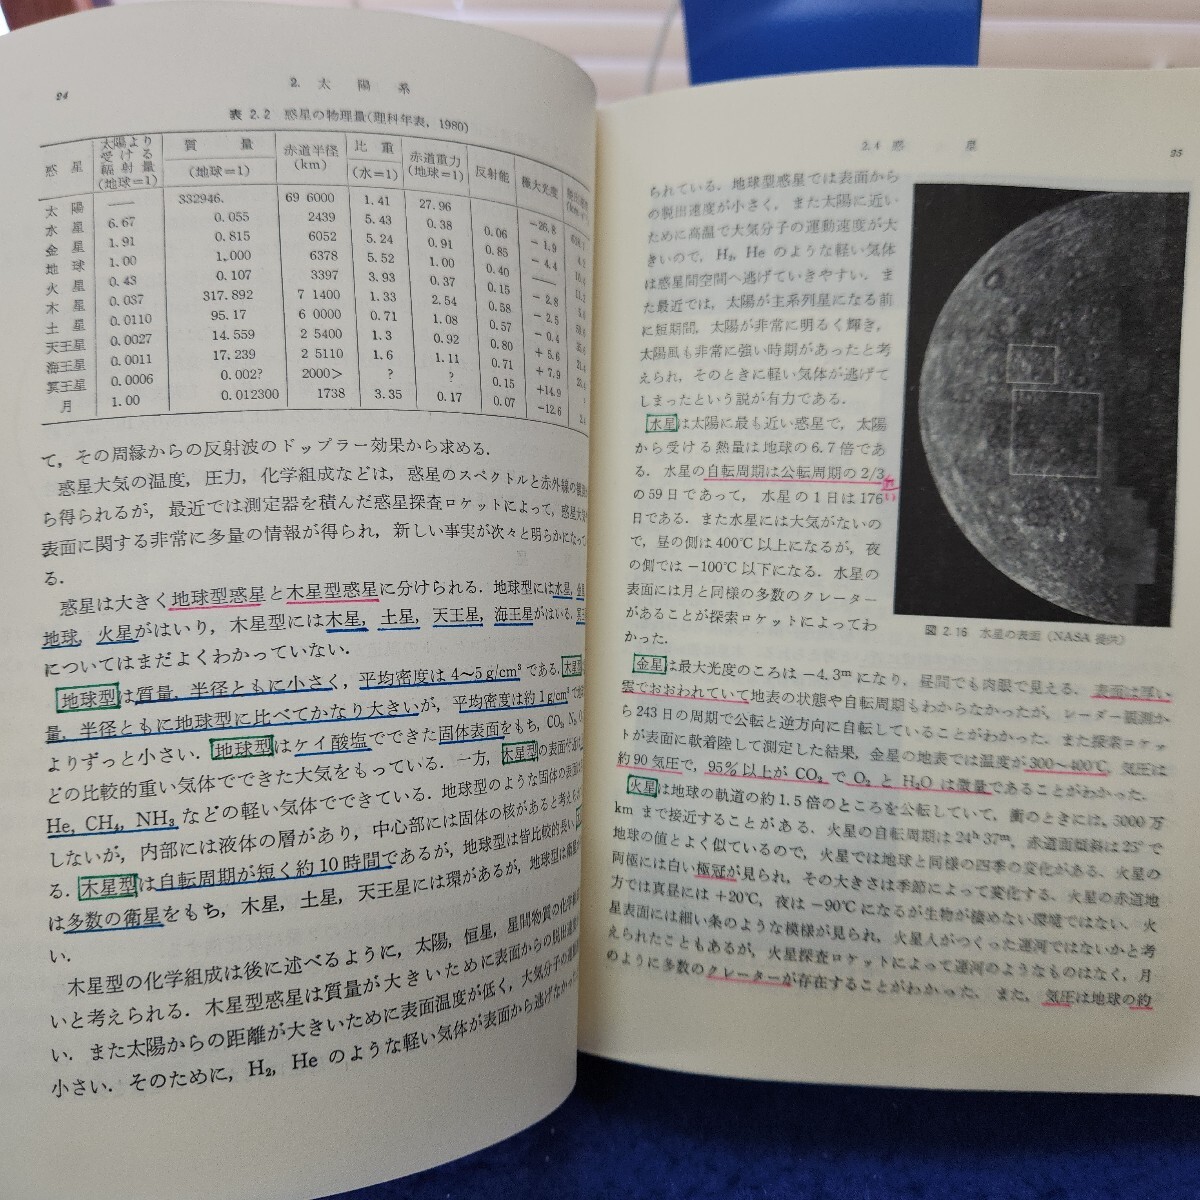 24
2. 太陽系
表 2.2 惑星の物理量(理科年表, 1980)
惑星 太陽より受ける輻射量(地球=1) 質量(地球=1) 赤道半径(km) 比重(水=1) 赤道重力(地球=1) 反射能 極大光度
太陽 —— 332946. 69 6000 1.41 27.96 −26.8
水星 6.67 0.055 2439 5.43 0.38 0.06 −1.9
金星 1.91 0.815 6052 5.24 0.91 0.85 −4.4
地球 1.00 1.000 6378 5.52 1.00 0.40 ——
火星 0.43 0.107 3397 3.93 0.37 0.15 −2.8
木星 0.037 317.892 7 1400 1.33 2.54 0.58 −2.5
土星 0.0110 95.17 6 0000 0.71 1.08 0.57 −0.4
天王星 0.0027 14.559 2 5400 1.3 0.92 0.80 +5.6
海王星 0.0011 17.239 2 5110 1.6 1.11 0.71 +7.9
冥王星 0.0006 0.002? 2000> ? ? 0.15 +14.9
月 1.00 0.012300 1738 3.35 0.17 0.07 −12.6
て，その周縁からの反射波のドップラー効果から求める．
惑星大気の温度，圧力，化学組成などは，惑星のスペクトルと赤外線の
ら得られるが，最近では測定器を積んだ惑星探査ロケットによって，惑星大気
表面に関する非常に多量の情報が得られ，新しい事実が次々と明らかになって
る．
惑星は大きく地球型惑星と木星型惑星に分けられる．地球型には水星，金星
地球，火星がはいり，木星型には木星，土星，天王星，海王星がはいる．冥王
についてはまだよくわかっていない．
地球型は質量，半径ともに小さく，平均密度は 4〜5 g/cm³ である．木星型
量，半径ともに地球型に比べてかなり大きいが，平均密度は約 1 g/cm³ で地球
よりずっと小さい．地球型はケイ酸塩でできた固体表面をもち，CO₂, N₂, O₂
どの比較的重い気体でできた大気をもっている．一方，木星型の表面では
He, CH₄, NH₃ などの軽い気体でできている．地球型のような固体の表面は
しないが，内部には液体の層があり，中心部には固体の核があると考えら
る．木星型は自転周期が短く約 10 時間であるが，地球型は皆比較的長い．
は多数の衛星をもち，木星，土星，天王星には環があるが，地球型は衛星
い．
木星型の化学組成は後に述べるように，太陽，恒星，星間物質の化学組成
いと考えられる．木星型惑星は質量が大きいために表面からの脱出速度
い．また太陽からの距離が大きいために表面温度が低く，大気分子の運動
小さい．そのために，H₂, He のような軽い気体が表面から逃げなかった
2.4 惑星
25
られている．地球型惑星では表面から
の脱出速度が小さく，また太陽に近い
ために高温で大気分子の運動速度が大
きいので，H₂, He のような軽い気体
は惑星間空間へ逃げていきやすい．ま
た最近では，太陽が主系列星になる前
に短期間，太陽が非常に明るく輝き，
太陽風も非常に強い時期があったと考
えられ，そのときに軽い気体が逃げて
しまったという説が有力である．
水星は太陽に最も近い惑星で，太陽
から受ける熱量は地球の 6.7 倍であ
る．水星の自転周期は公転周期の 2/3
近い
の 59 日であって，水星の 1 日は 176
日である．また水星には大気がないの
で，昼の側は 400℃ 以上になるが，夜
の側では −100℃ 以下になる．水星の
表面には月と同様の多数のクレーター
があることが探索ロケットによってわ
かった．
図 2.16 水星の表面 (NASA 提供)
金星は最大光度のころは −4.3ᵐ になり，昼間でも肉眼で見える．表面は厚い
雲でおおわれていて地表の状態や自転周期もわからなかったが，レーダー観測か
ら 243 日の周期で公転と逆方向に自転していることがわかった．また探索ロケッ
トが表面に軟着陸して測定した結果，金星の地表では温度が 300〜400℃，気圧は
約 90 気圧で，95% 以上が CO₂ で O₂ と H₂O は微量であることがわかった．
火星は地球の軌道の約 1.5 倍のところを公転していて，衝のときには，5000 万
km まで接近することがある．火星の自転周期は 24ʰ 37ᵐ，赤道面傾斜は 25° で
地球の値とよく似ているので，火星では地球と同様の四季の変化がある．火星の
両極には白い極冠が見られ，その大きさは季節によって変化する．火星の赤道地
方では真昼には +20℃，夜は −90℃ になるが生物が棲めない環境ではない．火
星表面には細い条のような模様が見られ，火星人がつくった運河ではないかと考
えられたこともあるが，火星探査ロケットによって運河のようなものはなく，月
のように多数のクレーターが存在することがわかった．また，気圧は地球の約